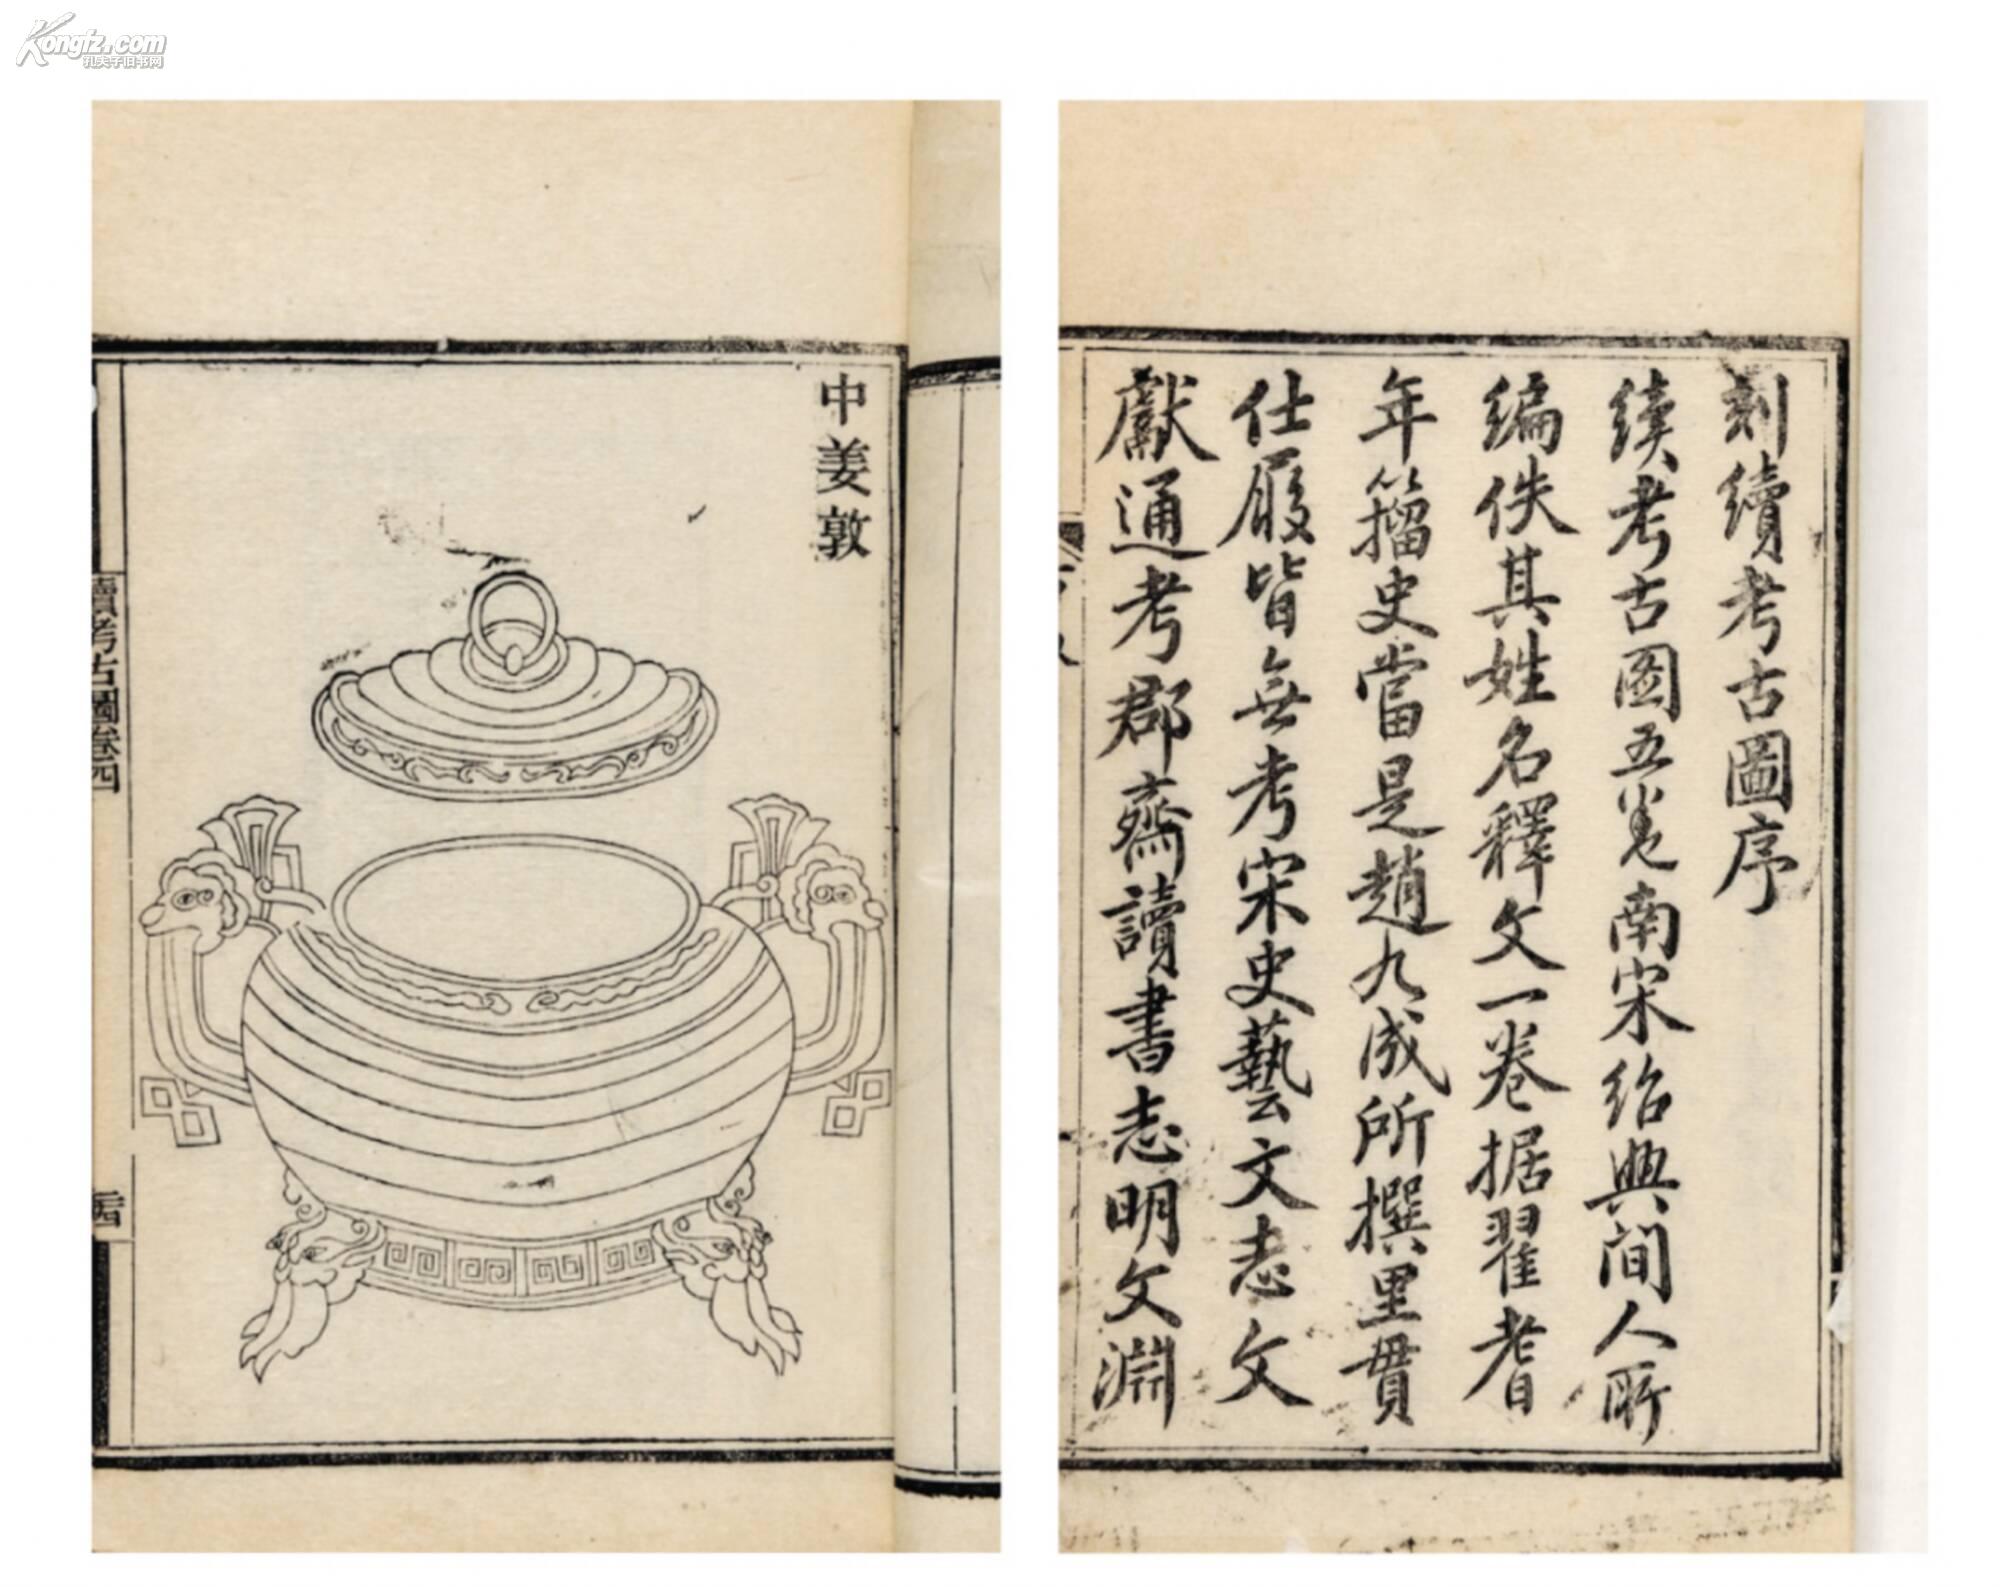 Kongfz.com
孔夫子旧书网
中姜敦
續考古圖卷四
刻續考古圖序
续考古圖五卷南宋紹興間人所
編佚其姓名釋文一卷据翟耆
年籀史當是趙九成所撰里貫
仕履皆無考宋史藝文志文
獻通考郡齋讀書志明文淵